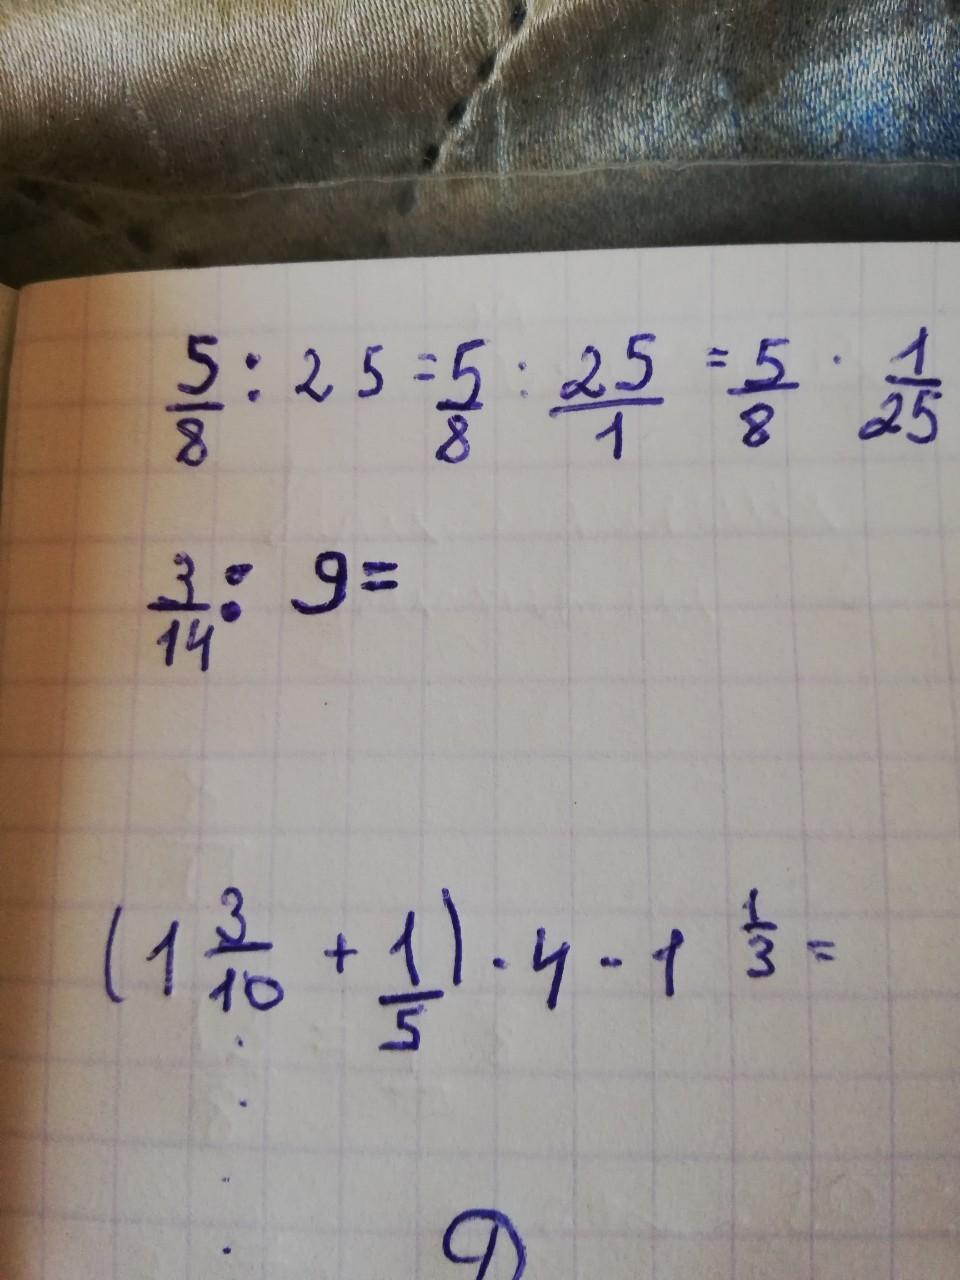 5/8 : 25 = 5/8 : 25/1 = 5/8 · 1/25
3/14 : 9 =
(1 3/10 + 1/5) · 4 - 1 1/3 =